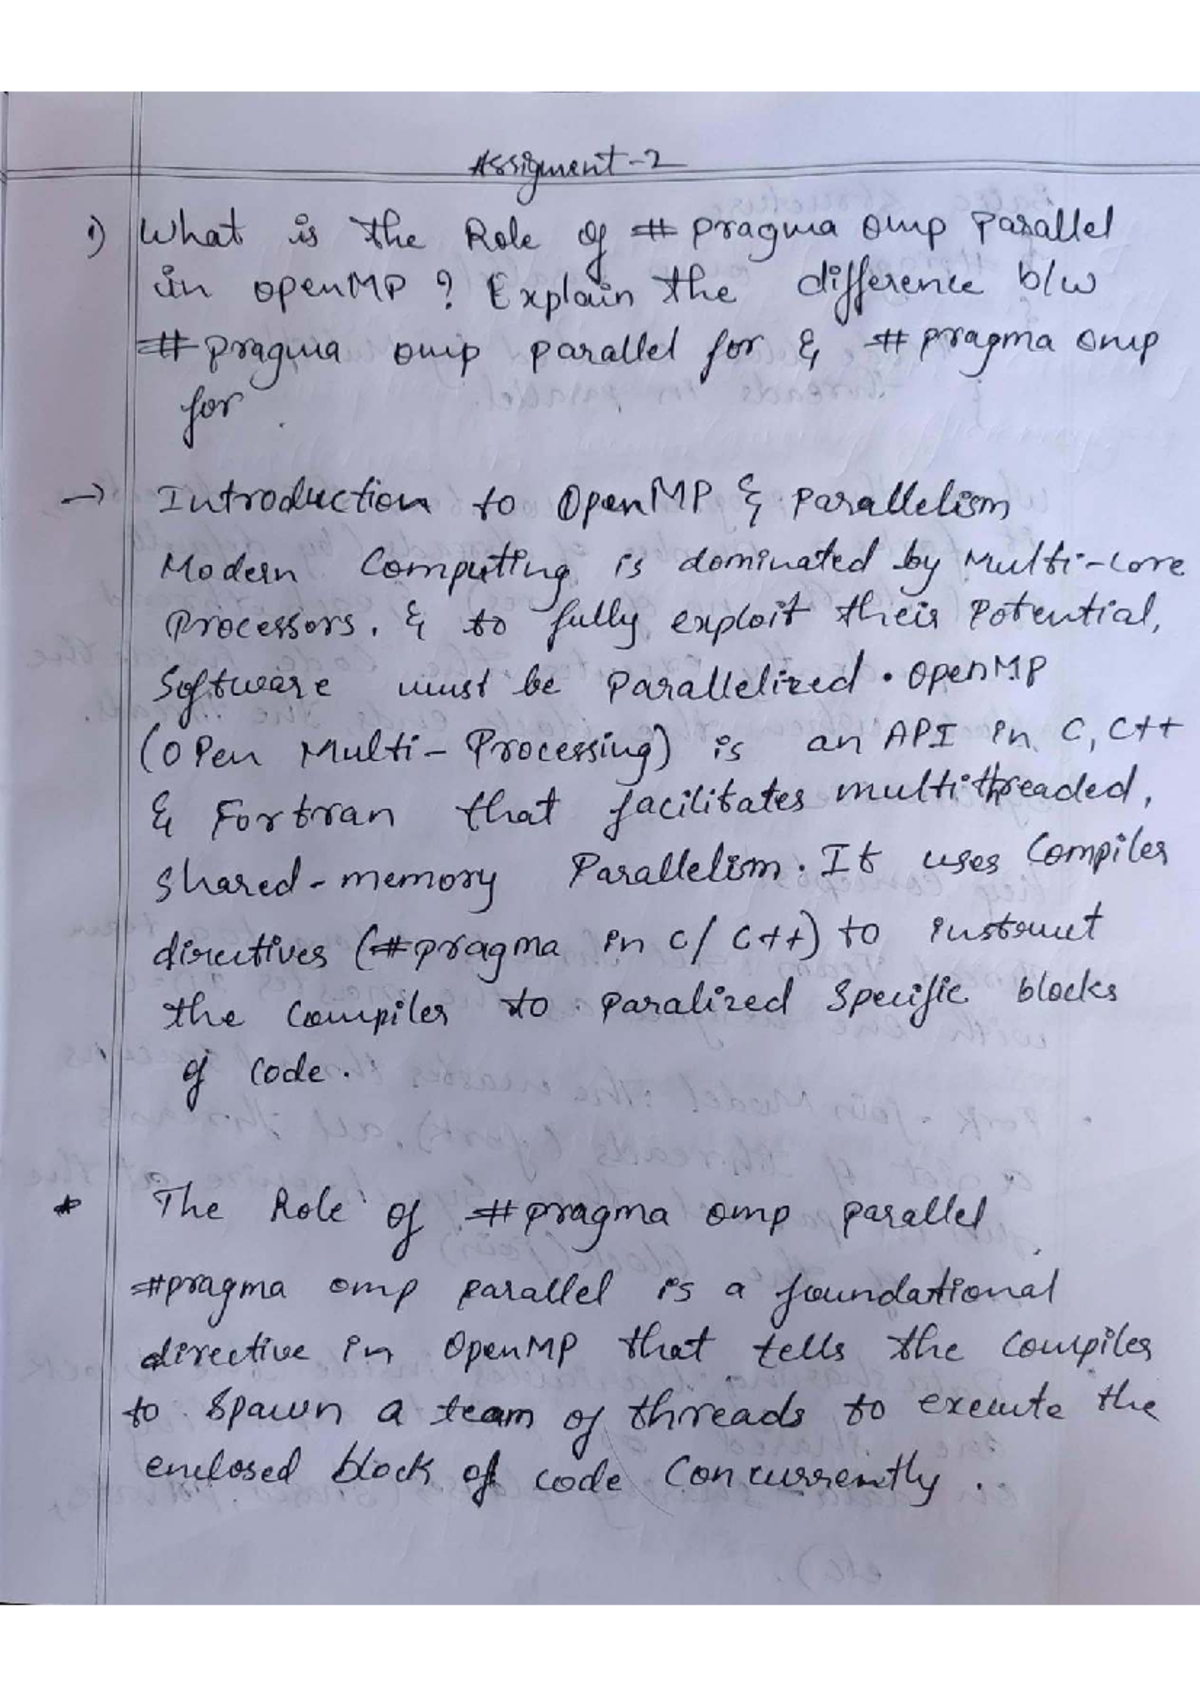 Assigment-2
1) What is the Role of #pragma omp Parallel
in openMP ? Explain the difference b/w
#pragma omp parallel for & #pragma omp
for.
→ Introduction to OpenMP & Parallelism
Modern Computing is dominated by Multi-core
Processors. & to fully exploit their Potential,
Software must be Parallelized. OpenMP
(Open Multi-Processing) is an API in C, C++
& Fortran that facilitates multithreaded,
shared-memory Parallelism. It uses Compiler
directives (#pragma in C/C++) to instruct
the Compiler to Paralized Specific blocks
of code.
* The Role of #pragma omp parallel
#pragma omp parallel is a foundational
directive in OpenMP that tells the Compiler
to Spawn a team of threads to execute the
enclosed block of code Concurrently.